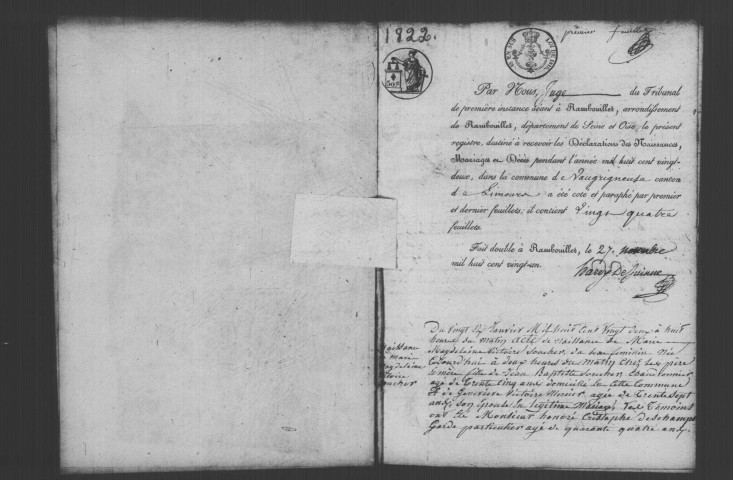 1822.
premier feuillet
Par Nous, Juge du Tribunal
de première instance séant à Rambouillet, arrondissement
de Rambouillet, département de Seine et Oise, le présent
registre, destiné à recevoir les Déclarations des Naissances,
Mariages et Décès pendant l'année mil huit cent vingt-
deux, dans la commune de Vaugrigneuse canton
de Limours a été coté et paraphé par premier
et dernier feuillets; il contient Vingt quatre
feuillets.
Fait double à Rambouillet, le 27 novembre
mil huit cent vingt-un.
Du Vingt Six Janvier Mil huit Cent Vingt deux à huit
heures du matin Acte de naissance de Marie
Magdeleine Victoire Souchor, du Sexe féminin Née
Cejourdhui à deux heures du matin Chez Ses père
et mère fille de Jean Baptiste Souchor Charbonnier
agé de Trente Cinq ans domicilié En Cette Commune
Et de Geneviève Victoire Mercier agée de Trente Sept
ans, Son Epouse En légitime Mariage, Les Témoins
ont Eté Monsieur honoré Cristophe deschamps
Garde particulier agé de quarante quatre ans
Naissance
marie
magdeleine
Victoire
Souchor